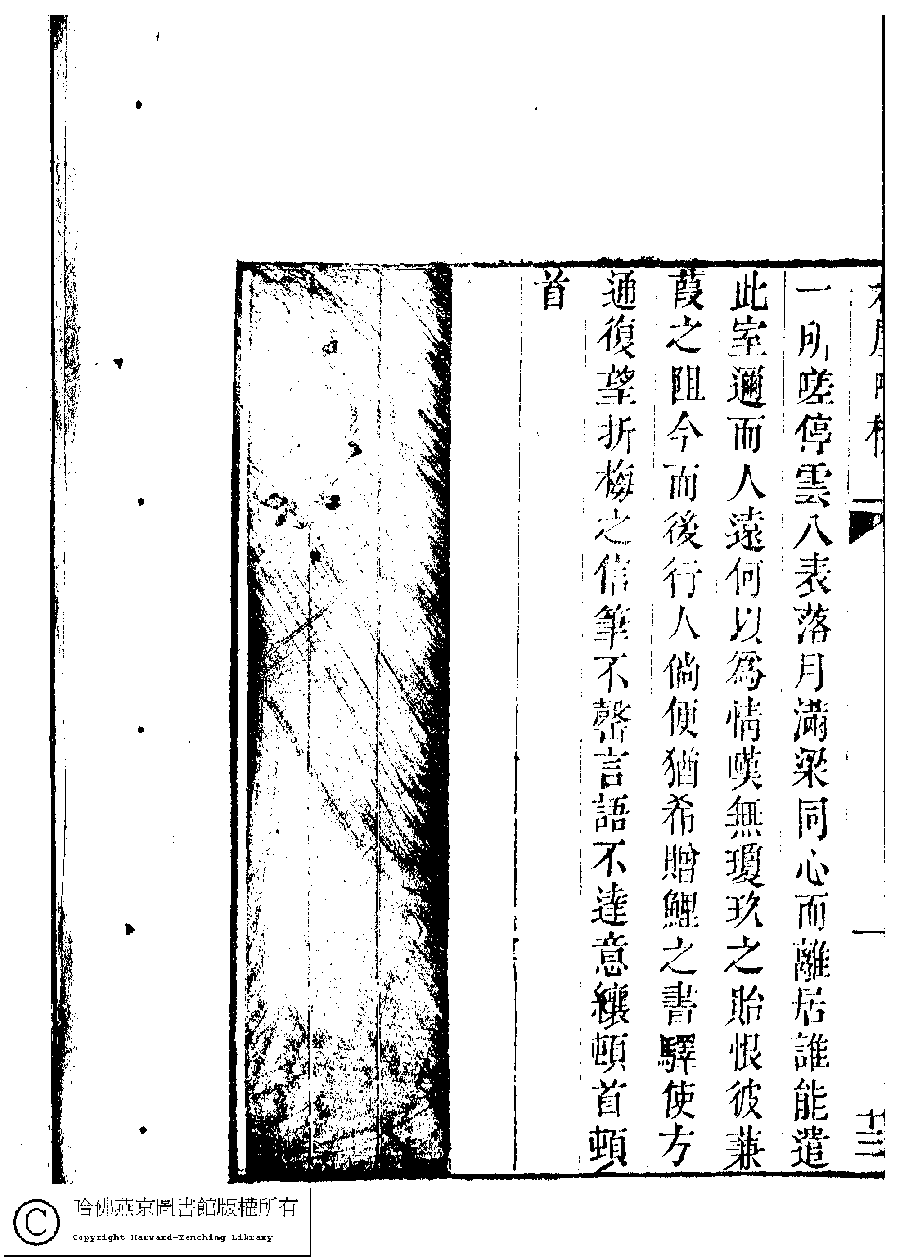 一所嗟停雲八表落月滿梁同心而離居誰能遣
此室邇而人遠何以為情嘆無瓊玖之貽恨彼蒹
葭之阻今而後行人倘便猶希贈鯉之書驛使方
通復望折梅之信筆不罄言語不達意纕頓首頓
首
十三
哈佛燕京圖書館版權所有
Copyright Harvard-Yenching Library